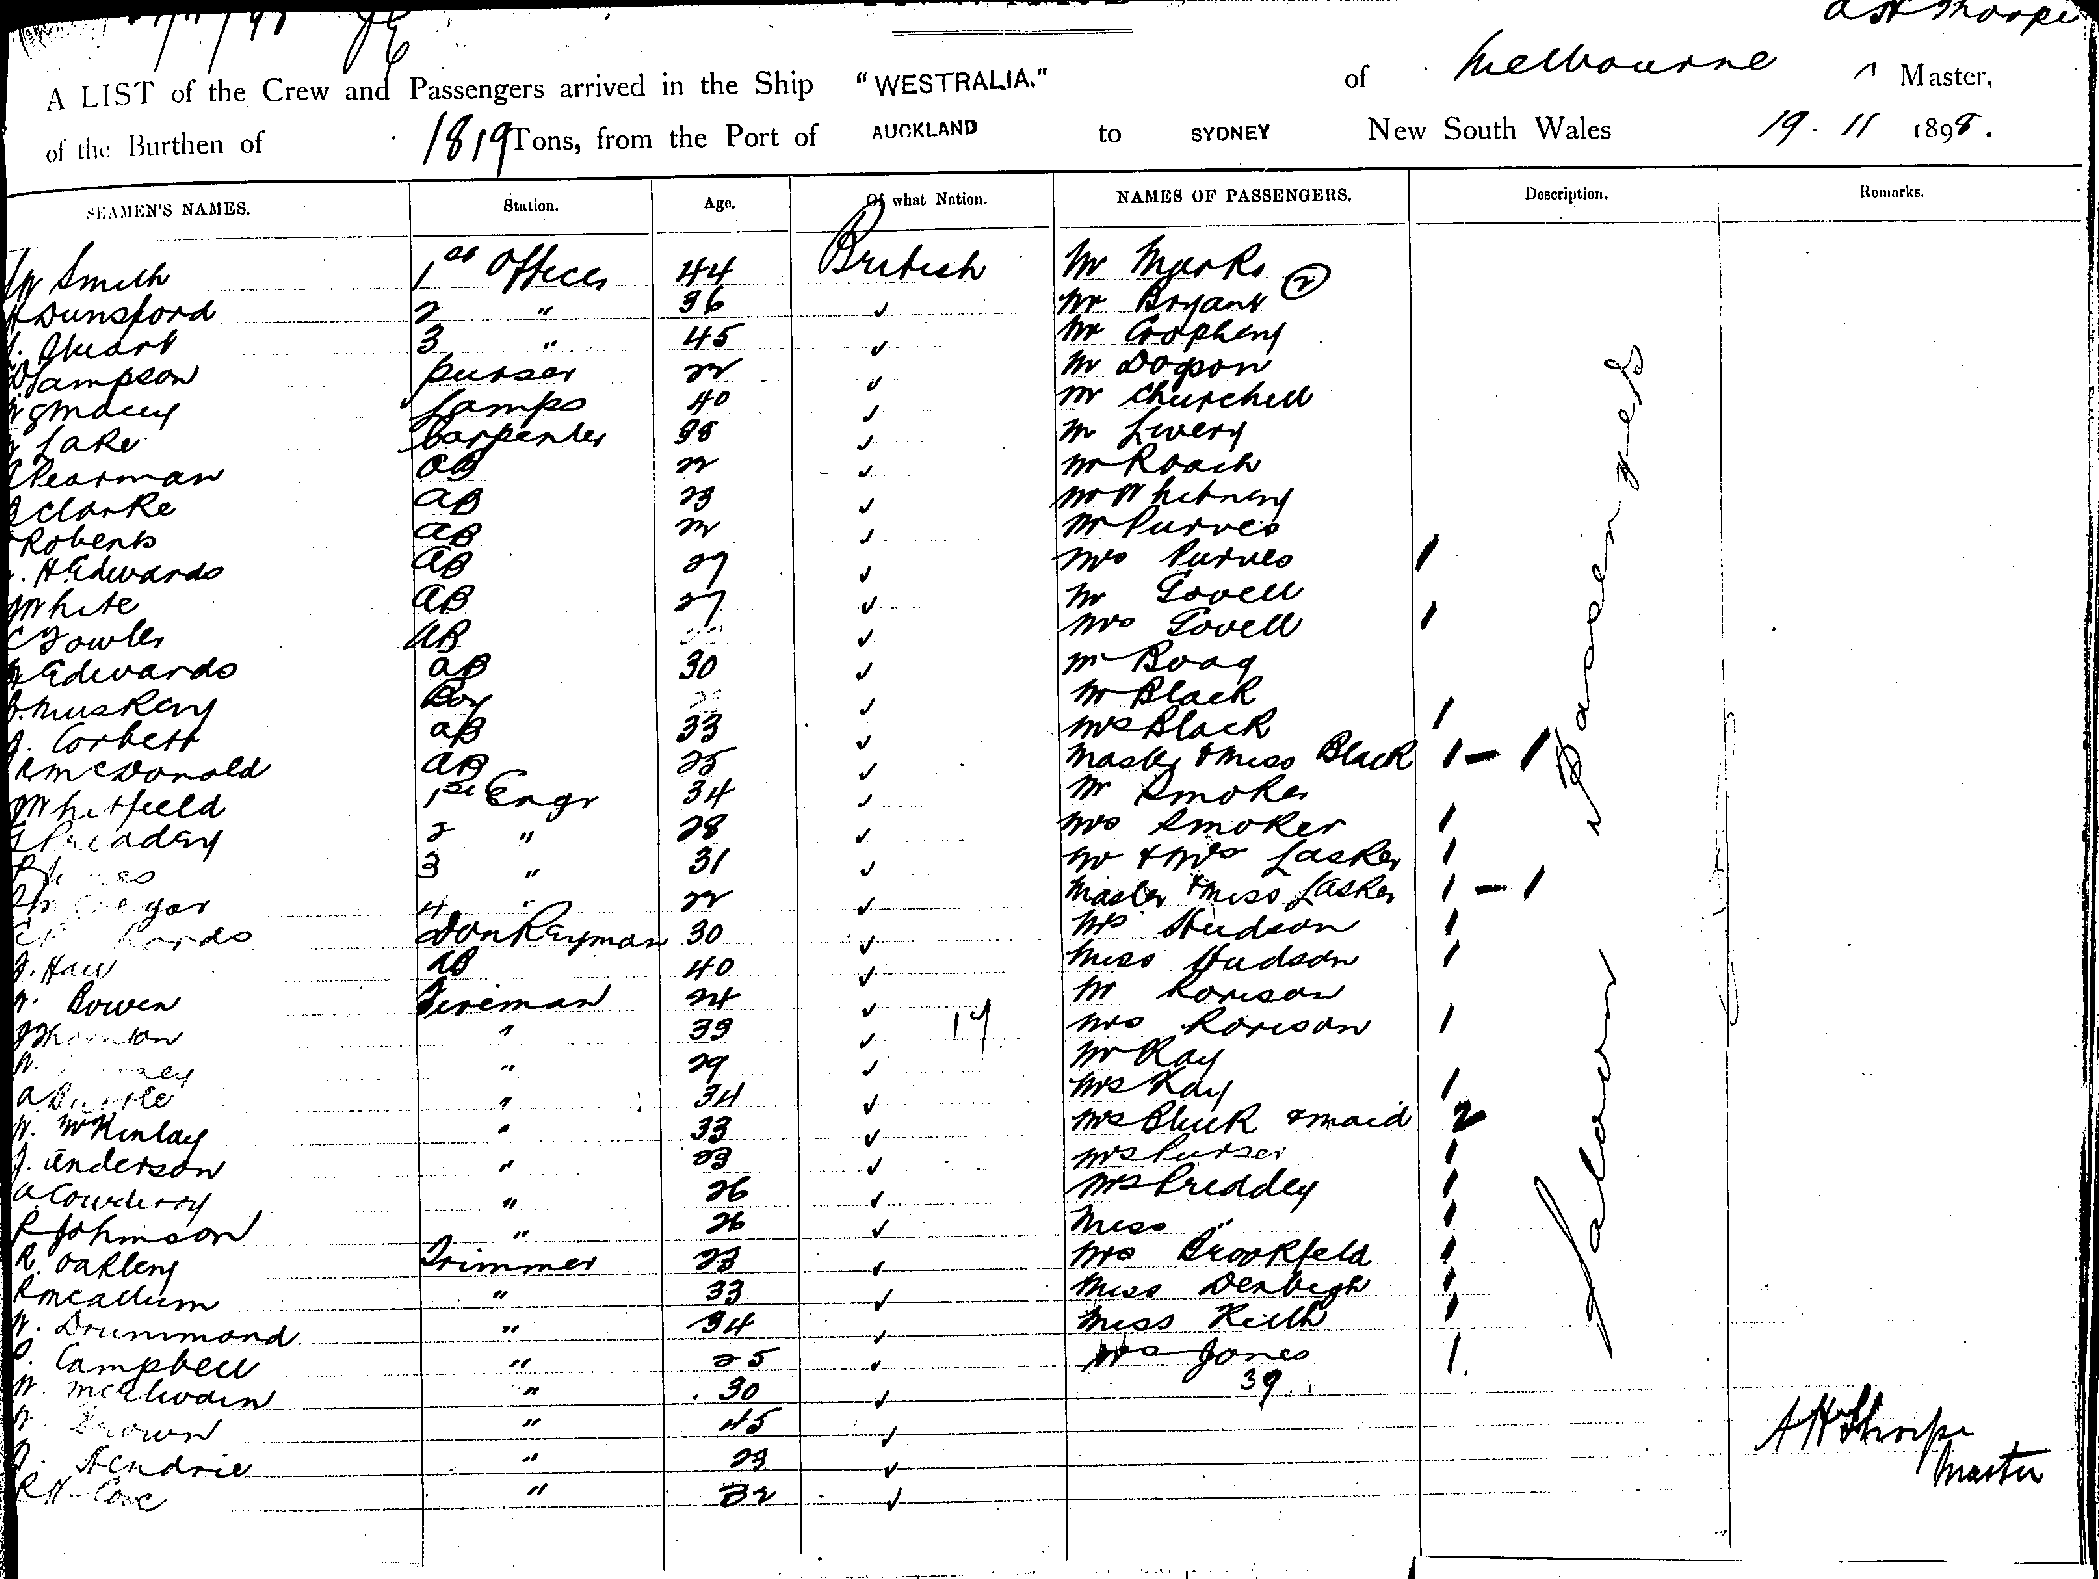 A H Thorpe
A LIST of the Crew and Passengers arrived in the Ship "WESTRALIA." of Melbourne ^ Master,
of the Burthen of 1819 Tons, from the Port of AUCKLAND to SYDNEY New South Wales 19. 11 1898.
SEAMEN'S NAMES. Station. Age. Of what Nation. NAMES OF PASSENGERS. Description. Remarks.
W Smith 1st Officer 44 British Mr Marks
Dunsford 2 " 36 ✓ Mr Bryant (2)
Stuart 3 " 45 ✓ Mr
Sampson purser 22 ✓ Mr
Macey Lamps 40 ✓ Mr Churchill
Lake Carpenter 38 ✓ Mr Livery
Pearman AB 22 ✓ Mr Roach
Clarke AB 23 ✓ Mr Whitney
Roberts AB 22 ✓ Mr Purves
H Edwards AB 27 ✓ Mrs Purves 1
White AB 27 ✓ Mr Lovell
C Fowler AB ✓ Mrs Lovell 1
Edwards AB 30 ✓ Mr Boag
Muskeny Boy ✓ Mr Black
J. Corbett AB 33 ✓ Mrs Black 1
McDonald AB 25 ✓ Master & Miss Black 1 - 1
Whitfield 1st Engr 34 ✓ Mr Smoker
Preadey 2 " 28 ✓ Mrs Smoker 1
3 " 31 ✓ Mr & Mrs Lasker 1
4 " 22 ✓ Master & Miss Lasker 1 - 1
Donkeyman 30 ✓ Mrs Hudson 1
J. Hall AB 40 ✓ Miss Hudson 1
W. Bowen Fireman 24 ✓ Mr Rorison
Thornton " 39 ✓ 17 Mrs Rorison 1
W. " 29 ✓ Mr Kay
A " 34 ✓ Mrs Kay 1
W. McKinlay " 33 ✓ Mrs Bluck & maid 2
J. Anderson " 23 ✓ Mrs Purser 1
A Courderoy " 26 ✓ Mrs Priddey 1
R Johnson " 26 ✓ Miss " 1
R. Oakleny Trimmer 23 ✓ Mrs Brookfeld 1
R McCallum " 33 ✓ Miss Denbigh 1
W. Drummond " 34 ✓ Miss Keith 1
P. Campbell " 25 ✓ Mrs Jones 1
W. McIlwain " 30 ✓ 39
W. Brown " 45 ✓
J. Hendrie " 23 ✓
R W Cove " 32 ✓
Saloon Passengers
A H Thorpe
Master